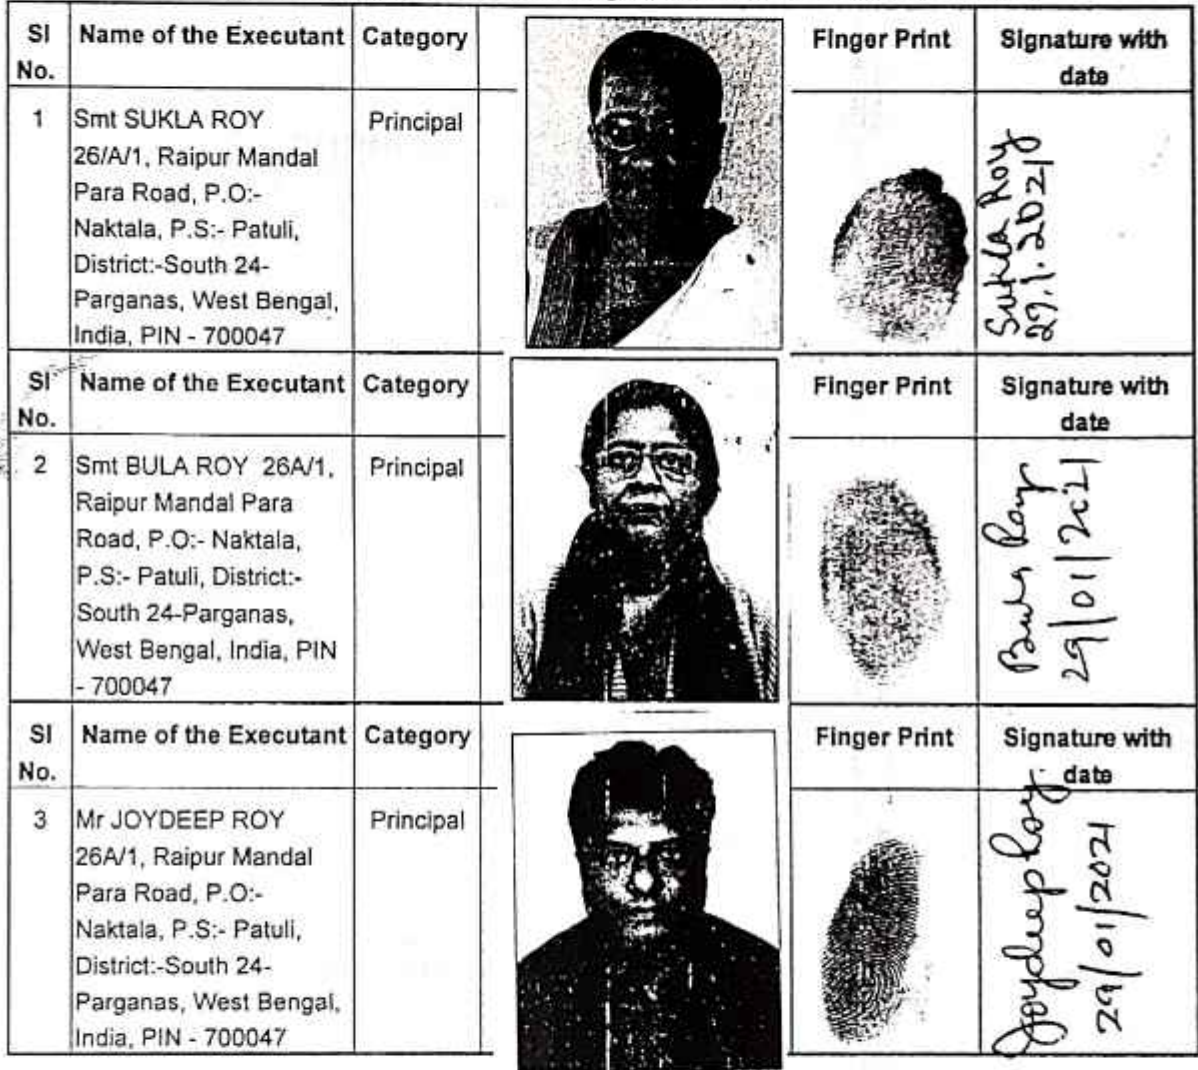 Sl No. Name of the Executant Category Finger Print Signature with date
1 Smt SUKLA ROY
26/A/1, Raipur Mandal
Para Road, P.O:-
Naktala, P.S:- Patuli,
District:-South 24-
Parganas, West Bengal,
India, PIN - 700047
Principal
Sukla Roy
29.1.2021
Sl No. Name of the Executant Category Finger Print Signature with date
2 Smt BULA ROY 26A/1,
Raipur Mandal Para
Road, P.O:- Naktala,
P.S:- Patuli, District:-
South 24-Parganas,
West Bengal, India, PIN
- 700047
Principal
Bula Roy
29/01/2021
Sl No. Name of the Executant Category Finger Print Signature with date
3 Mr JOYDEEP ROY
26A/1, Raipur Mandal
Para Road, P.O:-
Naktala, P.S:- Patuli,
District:-South 24-
Parganas, West Bengal,
India, PIN - 700047
Principal
Joydeep Roy
29/01/2021